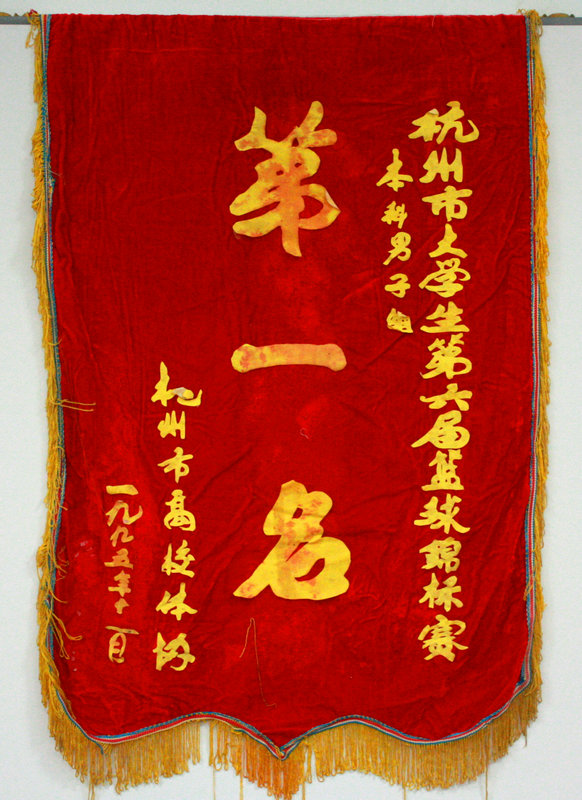 杭州市大学生第六届篮球锦标赛
本科男子组
第一名
杭州市高校体协
一九九五年十一月